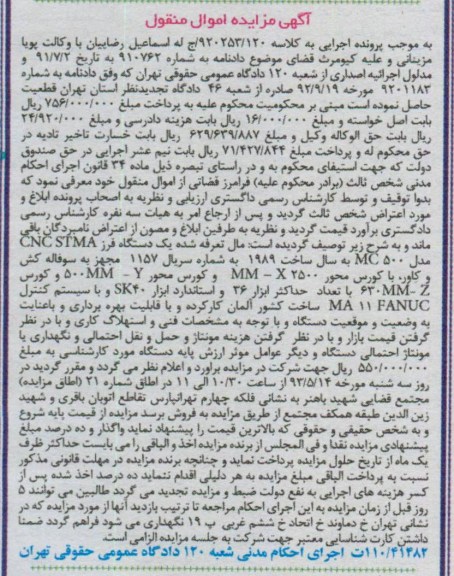 آگهی مزایده اموال منقول
به موجب پرونده اجرایی به کلاسه ۹۲۰۲۵۳/۱۲۰/ج له اسماعیل رضاییان با وکالت پویا
مزینانی و علیه کیومرث قضای موضوع دادنامه به شماره ۹۱۰۷۶۲ به تاریخ ۹۱/۷/۲ و
مدلول اجرائیه اصداری از شعبه ۱۲۰ دادگاه عمومی حقوقی تهران که وفق دادنامه به شماره
۹۲۰۱۱۸۳ مورخه ۹۲/۹/۱۹ صادره از شعبه ۴۶ دادگاه تجدیدنظر استان تهران قطعیت
حاصل نموده است مبنی بر محکومیت محکوم علیه به پرداخت مبلغ ۷۵۶/۰۰۰/۰۰۰ ریال
بابت اصل خواسته و مبلغ ۱۶/۰۰۰/۰۰۰ ریال بابت هزینه دادرسی و مبلغ ۲۴/۹۲۰/۰۰۰
ریال بابت حق الوکاله وکیل و مبلغ ۶۲۹/۶۳۹/۸۸۷ ریال بابت خسارت تاخیر تادیه در
حق محکوم له و پرداخت مبلغ ۷۱/۴۲۷/۸۴۴ ریال بابت نیم عشر اجرایی در حق صندوق
دولت که جهت استیفای محکوم به و در راستای تبصره ذیل ماده ۳۴ قانون اجرای احکام
مدنی شخص ثالث (برادر محکوم علیه) فرامرز قضائی از اموال منقول خود معرفی نمود که
بدوا توقیف و توسط کارشناس رسمی داگستری ارزیابی و نظریه به اصحاب پرونده ابلاغ و
مورد اعتراض شخص ثالث گردید و پس از ارجاع امر به هیات سه نفره کارشناس رسمی
دادگستری برآورد قیمت گردید و نظریه به طرفین ابلاغ و مصون از اعتراض نامبردگان باقی
ماند و به شرح زیر توصیف گردیده است: مال تعرفه شده یک دستگاه فرز CNC STMA
مدل MC 500 به سال ساخت ۱۹۸۹ به شماره سریال ۱۱۵۷ مجهز به سوفاله کش
و کاور، با کورس محور MM – X ۲۵۰۰ و کورس محور ۵۰۰MM – Y و کورس
۶۳۰MM- Z با تعداد حداکثر ابزار ۳۶ و استاندارد ابزار SK۴۰ و با سیستم کنترل
MA ۱۱ FANUC ساخت کشور آلمان کارکرده و با قابلیت بهره برداری و باعنایت
به وضعیت و موقعیت دستگاه و با توجه به مشخصات فنی و استهلاک کاری و با در نظر
گرفتن قیمت بازار و با در نظر گرفتن هزینه مونتاژ و حمل و نقل احتمالی و نگهداری یا
مونتاژ احتمالی دستگاه و دیگر عوامل موثر ارزش پایه دستگاه مورد کارشناسی به مبلغ
۵۵۰/۰۰۰/۰۰۰ ریال جهت شرکت در مزایده براورد و اعلام نظر می گردد و مقرر گردید در
روز سه شنبه مورخه ۹۳/۵/۱۴ از ساعت ۱۰/۳۰ الی ۱۱ در اطاق شماره ۲۱ (اطاق مزایده)
مجتمع قضایی شهید باهنر به نشانی فلکه چهارم تهرانپارس تقاطع اتوبان باقری و شهید
زین الدین طبقه همکف مجتمع از طریق مزایده به فروش برسد مزایده از قیمت پایه شروع
و به شخص حقیقی و حقوقی که بالاترین قیمت را پیشنهاد نماید واگذار و ده درصد مبلغ
پیشنهادی مزایده نقدا و فی المجلس از برنده مزایده اخذ و الباقی را می بایست حداکثر ظرف
یک ماه از تاریخ حلول مزایده پرداخت نماید و چنانچه برنده مزایده در مهلت قانونی مذکور
نسبت به پرداخت الباقی مبلغ مزایده به هر دلیلی اقدام نتماید ده درصد اخذ شده پس از
کسر هزینه های اجرایی به نفع دولت ضبط و مزایده تجدید می گردد طالبین می توانند ۵
روز قبل از زمان مزایده به این اجرای احکام مراجعه تا ترتیب بازدید آنها از مورد مزایده که در
نشانی تهران خ دماوند خ اتحاد خ ششم غربی پ ۱۹ نگهداری می شود فراهم گردد ضمنا
داشتن کارت شناسایی معتبر جهت شرکت به جلسه مزایده الزامی است.
۱۱۰/۴۱۳۸۲ت اجرای احکام مدنی شعبه ۱۲۰ دادگاه عمومی حقوقی تهران